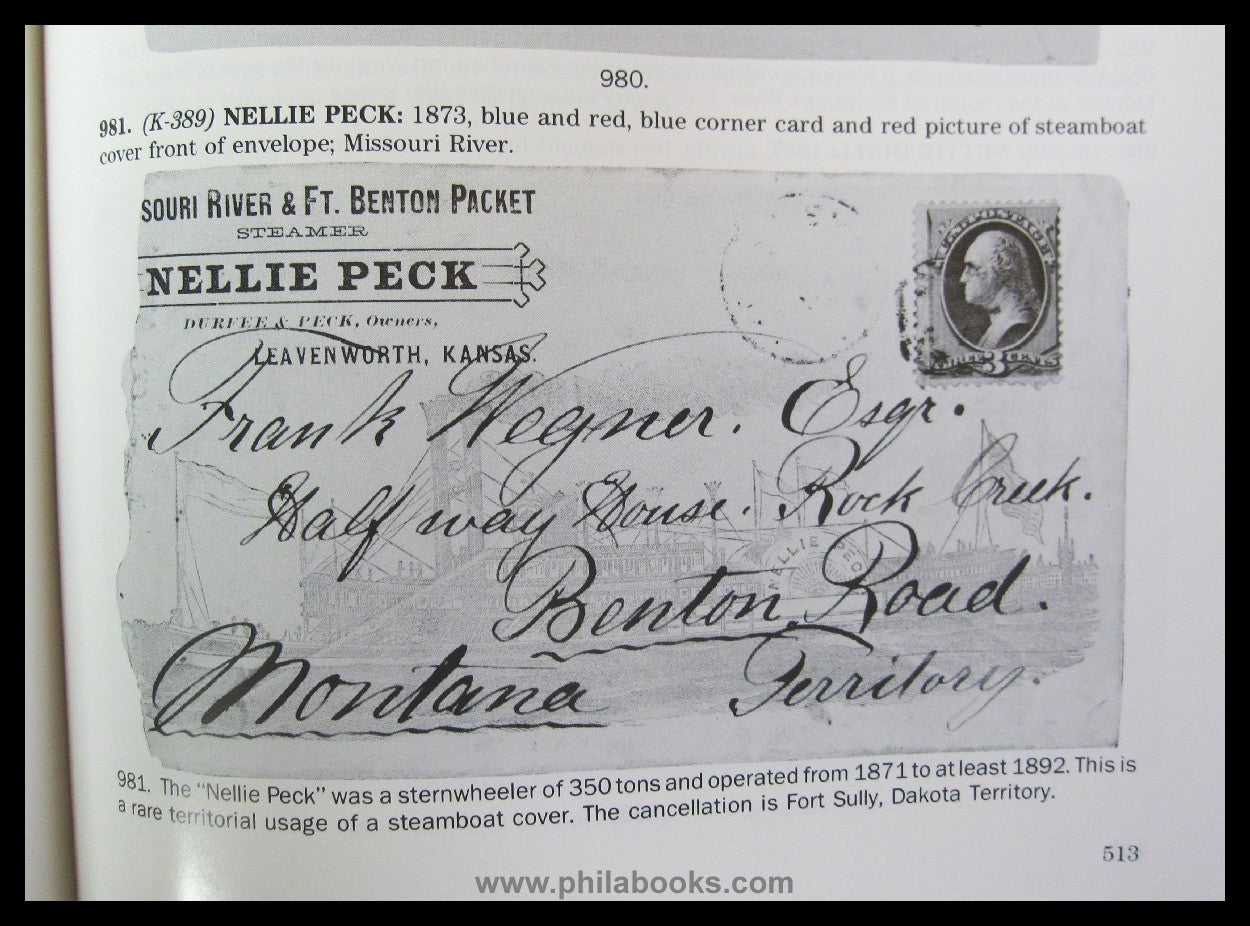 980.
981. (K-389) NELLIE PECK: 1873, blue and red, blue corner card and red picture of steamboat
cover front of envelope; Missouri River.
SOURI RIVER & FT. BENTON PACKET
STEAMER
NELLIE PECK
DURFEE & PECK, Owners,
LEAVENWORTH, KANSAS.
U.S. POSTAGE
THREE 3 CENTS
Frank Wegner. Esqr.
Half way House. Rock Creek.
NELLIE PECK
Benton Road.
Montana Territory.
981. The "Nellie Peck" was a sternwheeler of 350 tons and operated from 1871 to at least 1892. This is
a rare territorial usage of a steamboat cover. The cancellation is Fort Sully, Dakota Territory.
513
www.philabooks.com